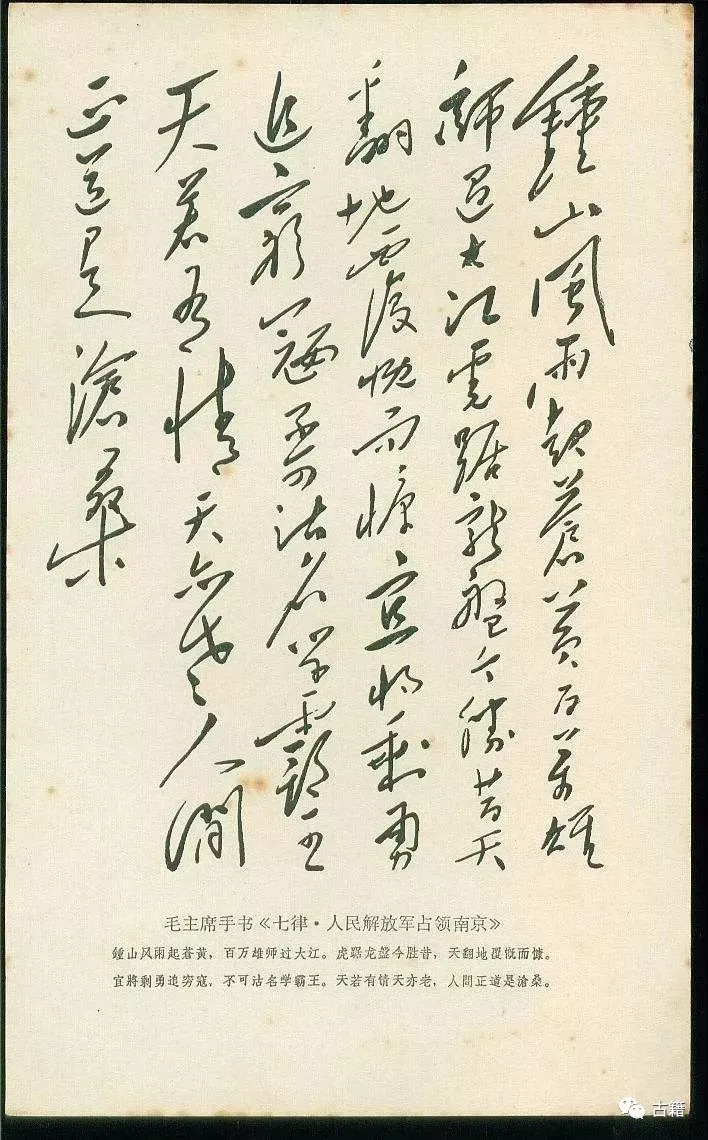 鍾山風雨起蒼黃百萬雄
師過大江虎踞龍盤今勝昔天
翻地覆慨而慷宜将剩勇
追窮寇不可沽名學霸王
天若有情天亦老人間
正道是滄桑
毛主席手书《七律·人民解放军占领南京》
鍾山风雨起苍黄，百万雄师过大江。虎踞龙盘今胜昔，天翻地覆慨而慷。
宜將剩勇追穷寇，不可沽名学霸王。天若有情天亦老，人間正道是滄桑。
古籍